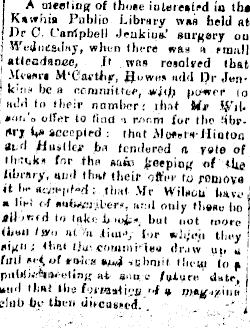 A meeting of those interested in the
Kawhia Public Library was held at
Dr C. Campbell Jenkins' surgery on
Wednesday, when there was a small
attendance. It was resolved that
Messrs McCarthy, Howes add Dr Jen-
kins be a committee, with power to
add to their number: that Mr Wil-
son's offer to find a room for the lib-
rary be accepted: that Messrs Hinton
and Hustler be tendered a vote of
thanks for the safe keeping of the
library, and that their offer to remove
it be accepted: that Mr Wilson have
a list of subscribers, and only those be
allowed to take books, but not more
than two at a time, for which they
sign; that the committee draw up a
full set of rules and submit them to a
public meeting at some future date,
and that the formation of a magazine
club be then discussed.